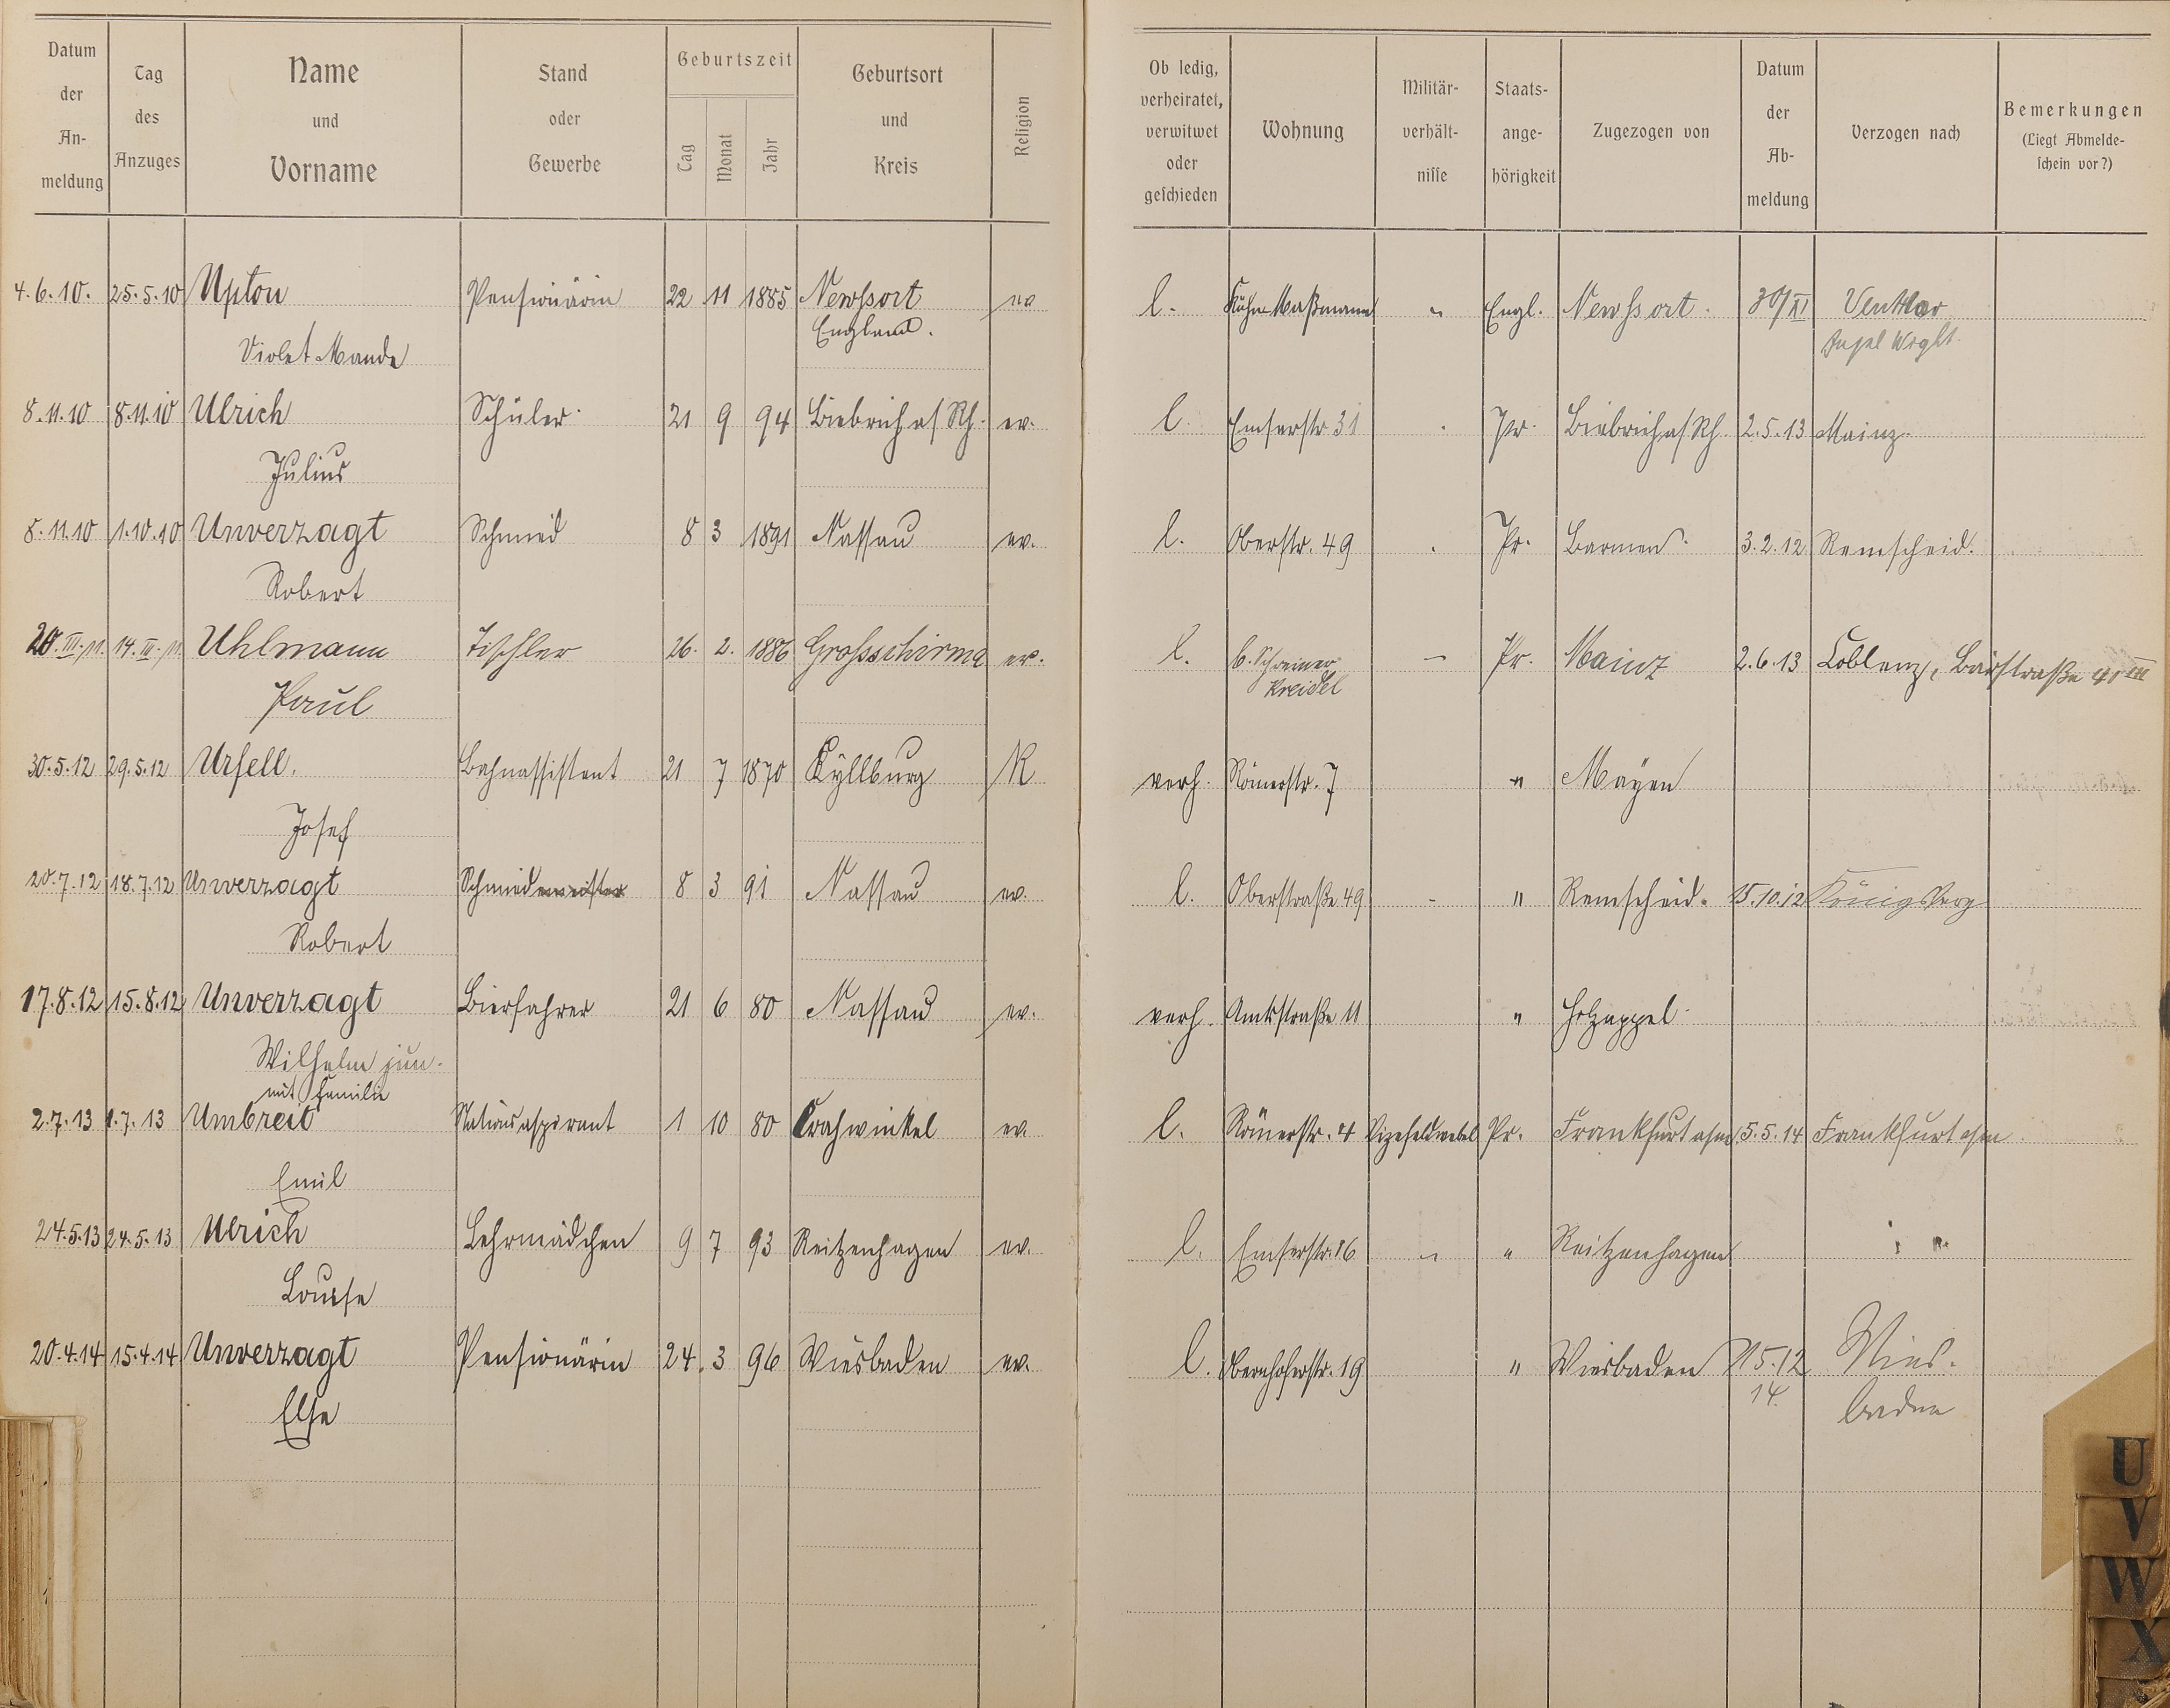 Datum der An-meldung
Tag des Anzuges
Name und Vorname
Stand oder Gewerbe
Geburtszeit
Tag Monat Jahr
Geburtsort und Kreis
Religion
Ob ledig, verheiratet, verwitwet oder geschieden
Wohnung
Militär-verhält-nisse
Staats-ange-hörigkeit
Zugezogen von
Datum der Ab-meldung
Verzogen nach
Bemerkungen
(Liegt Abmelde-schein vor?)
4.6.10. 25.5.10 Upton Pensionärin 22 11 1885 Newport ev l. Engl. Newport. 30/XI Ventnor
Violet Maude England. Insel Wight.
8.11.10 8.11.10 Ulrich Schüler 21 9 94 Biebrich a/Rh. ev. l. Emserstr 31 Pr. Biebrich a/Rh 2.5.13 Mainz
Julius
8.11.10 1.10.10 Unverzagt Schmied 8 3 1891 Nassau ev. l. Oberstr. 49 Pr. Barmen 3.2.12 Remscheid.
Robert
20.III.11. 14.III.11. Uhlmann Tischler 26. 2. 1886 Grossschirma ev. l. b. Schreiner – Pr. Mainz 2.6.13 Coblenz, 41 III
Paul Kreidel
30.5.12 29.5.12 Urfell. Bahnassistent 21 7 1870 Kyllburg K verh. Römerstr. 7 " Mayen
Josef
20.7.12 18.7.12 Unverzagt Schmiedemeister 8 3 91 Nassau ev. l. Oberstraße 49 - " Remscheid. 15.10.12 Königsberg
Robert
17.8.12 15.8.12 Unverzagt Bierfahrer 21 6 80 Nassau ev. verh. Amtsstraße 11 " Holzappel
Wilhelm jun.
mit Familie
2.7.13 1.7.13 Umbreit Stationsaspirant 1 10 80 Crahwinkel ev. l. Römerstr. 4 Vizefeldwebel Pr. Frankfurt a/m 15.5.14 Frankfurt a/m
Emil
24.5.13 24.5.13 Ulrich Lehrmädchen 9 7 93 Reitzenhagen ev. l. Emserstr. 16 " " Reitzenhagen
Louise
20.4.14 15.4.14 Unverzagt Pensionärin 24. 3 96 Wiesbaden ev. l. Obernhoferstr. 19 " Wiesbaden 15.12 Wies-
Else 14. baden
U
V
W
X